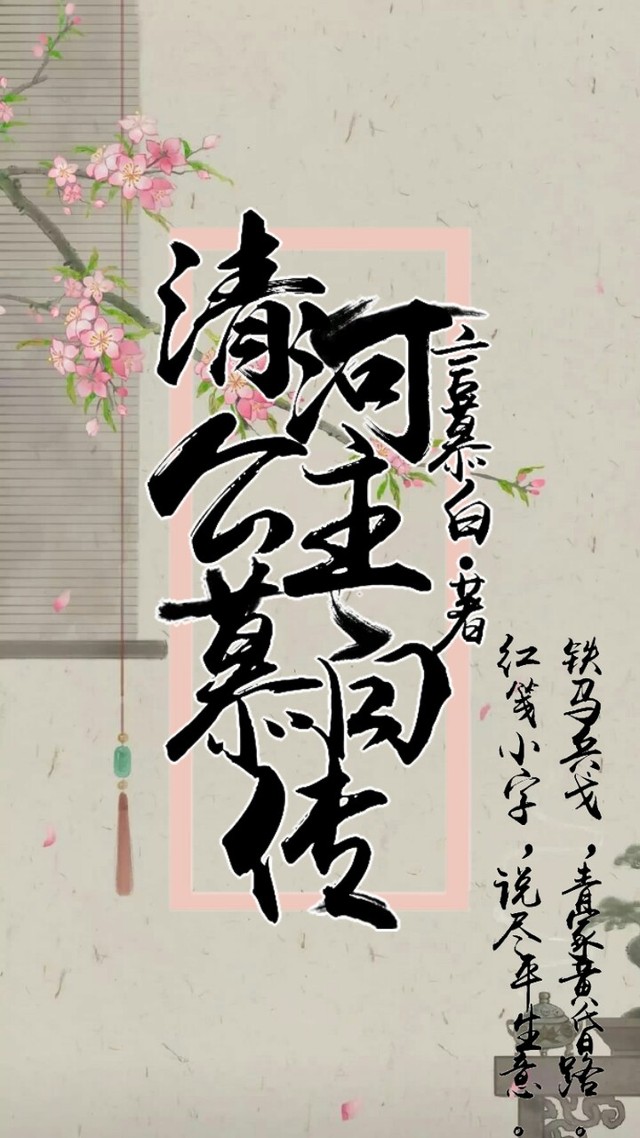 清河公主慕白传
言慕白·著
铁马兵戈，青冢黄昏路。
红笺小字，说尽平生意。